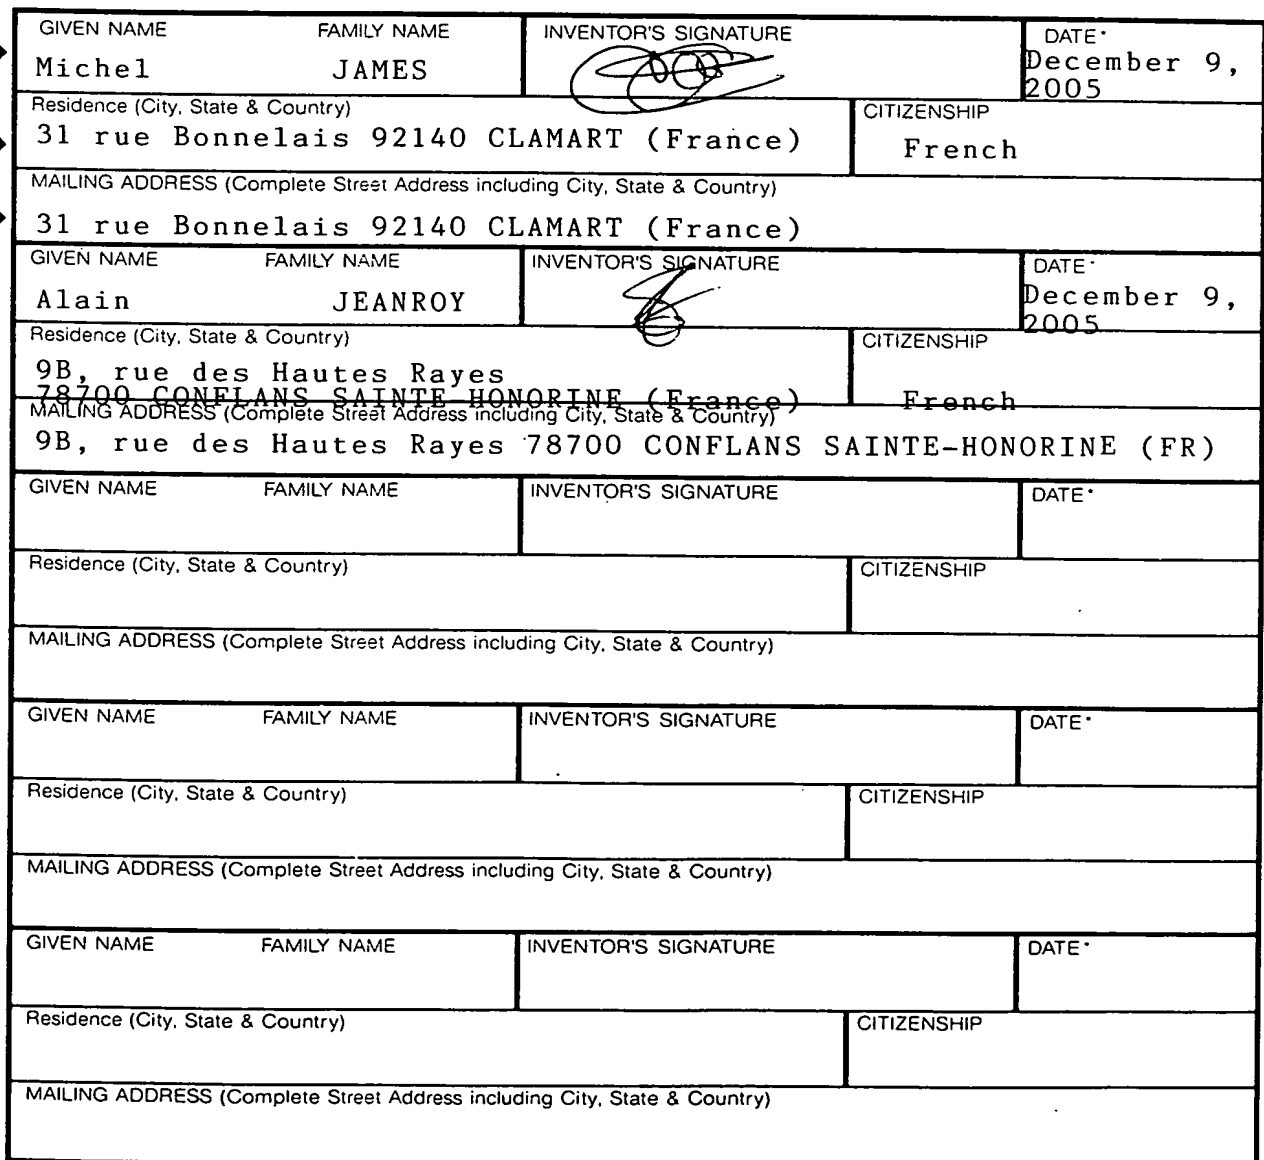 GIVEN NAME FAMILY NAME INVENTOR'S SIGNATURE DATE*
Michel JAMES December 9,
2005
Residence (City, State & Country) CITIZENSHIP
31 rue Bonnelais 92140 CLAMART (France) French
MAILING ADDRESS (Complete Street Address including City, State & Country)
31 rue Bonnelais 92140 CLAMART (France)
GIVEN NAME FAMILY NAME INVENTOR'S SIGNATURE DATE*
Alain JEANROY December 9,
2005
Residence (City, State & Country) CITIZENSHIP
9B, rue des Hautes Rayes
78700 CONFLANS SAINTE-HONORINE (France) French
MAILING ADDRESS (Complete Street Address including City, State & Country)
9B, rue des Hautes Rayes 78700 CONFLANS SAINTE-HONORINE (FR)
GIVEN NAME FAMILY NAME INVENTOR'S SIGNATURE DATE*
Residence (City, State & Country) CITIZENSHIP
MAILING ADDRESS (Complete Street Address including City, State & Country)
GIVEN NAME FAMILY NAME INVENTOR'S SIGNATURE DATE*
Residence (City, State & Country) CITIZENSHIP
MAILING ADDRESS (Complete Street Address including City, State & Country)
GIVEN NAME FAMILY NAME INVENTOR'S SIGNATURE DATE*
Residence (City, State & Country) CITIZENSHIP
MAILING ADDRESS (Complete Street Address including City, State & Country)